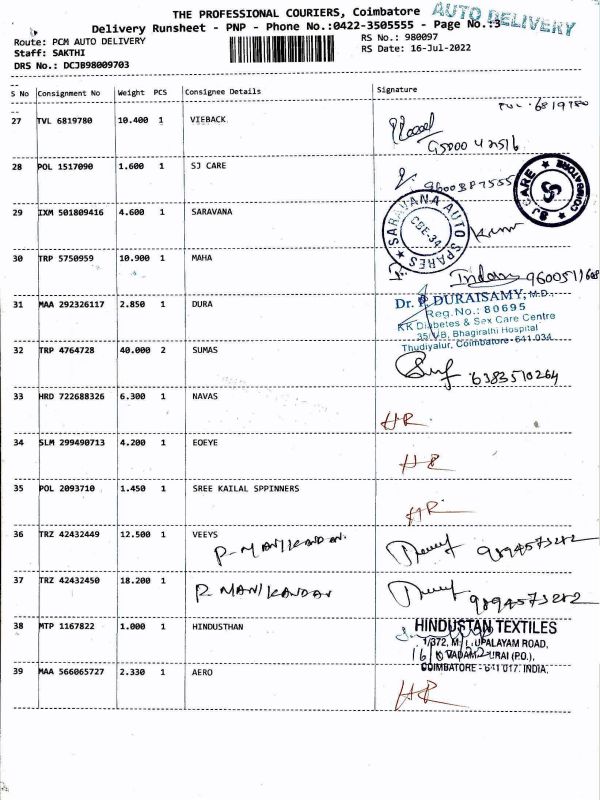 THE PROFESSIONAL COURIERS, Coimbatore
AUTO DELIVERY
Delivery Runsheet - PNP - Phone No.:0422-3505555 - Page No.:3
Route: PCM AUTO DELIVERY
RS No.: 980097
Staff: SAKTHI
RS Date: 16-Jul-2022
DRS No.: DCJB98009703
S No Consignment No Weight PCS Consignee Details Signature
27 TVL 6819780 10.400 1 VIEBACK
TVL. 6819780
28 POL 1517090 1.600 1 SJ CARE
SJ CARE ★ COIMBATORE ★
29 IXM 501809416 4.600 1 SARAVANA
SARAVANA AUTO SPARES ★ CBE-34 ★
30 TRP 5750959 10.900 1 MAHA
9600511668
31 MAA 292326117 2.850 1 DURA
Dr. P. DURAISAMY, M.D.,
Reg.No.: 80695
KK Diabetes & Sex Care Centre
35/VB, Bhagirathi Hospital
Thudiyalur, Coimbatore-641 034
32 TRP 4764728 40.000 2 SUMAS
6383510264
33 HRD 722688326 6.300 1 NAVAS
HR
34 SLM 299490713 4.200 1 EOEYE
HR
35 POL 2093710 1.450 1 SREE KAILAL SPPINNERS
HR
36 TRZ 42432449 12.500 1 VEEYS
P-MANIKANDAN. 9894573282
37 TRZ 42432450 18.200 1
P. MANIKANDAN 9894573282
38 MTP 1167822 1.000 1 HINDUSTHAN
HINDUSTAN TEXTILES
1/372, M. UPALAYAM ROAD,
VADAM URAI (P.O.),
COIMBATORE - 641 017. INDIA.
39 MAA 566065727 2.330 1 AERO
HR